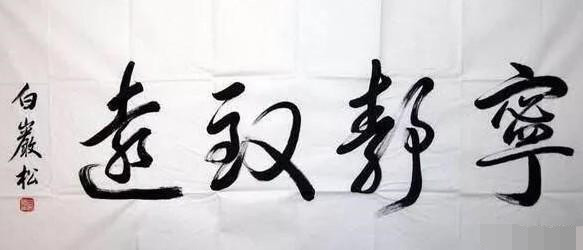 寧靜致遠
白巖松